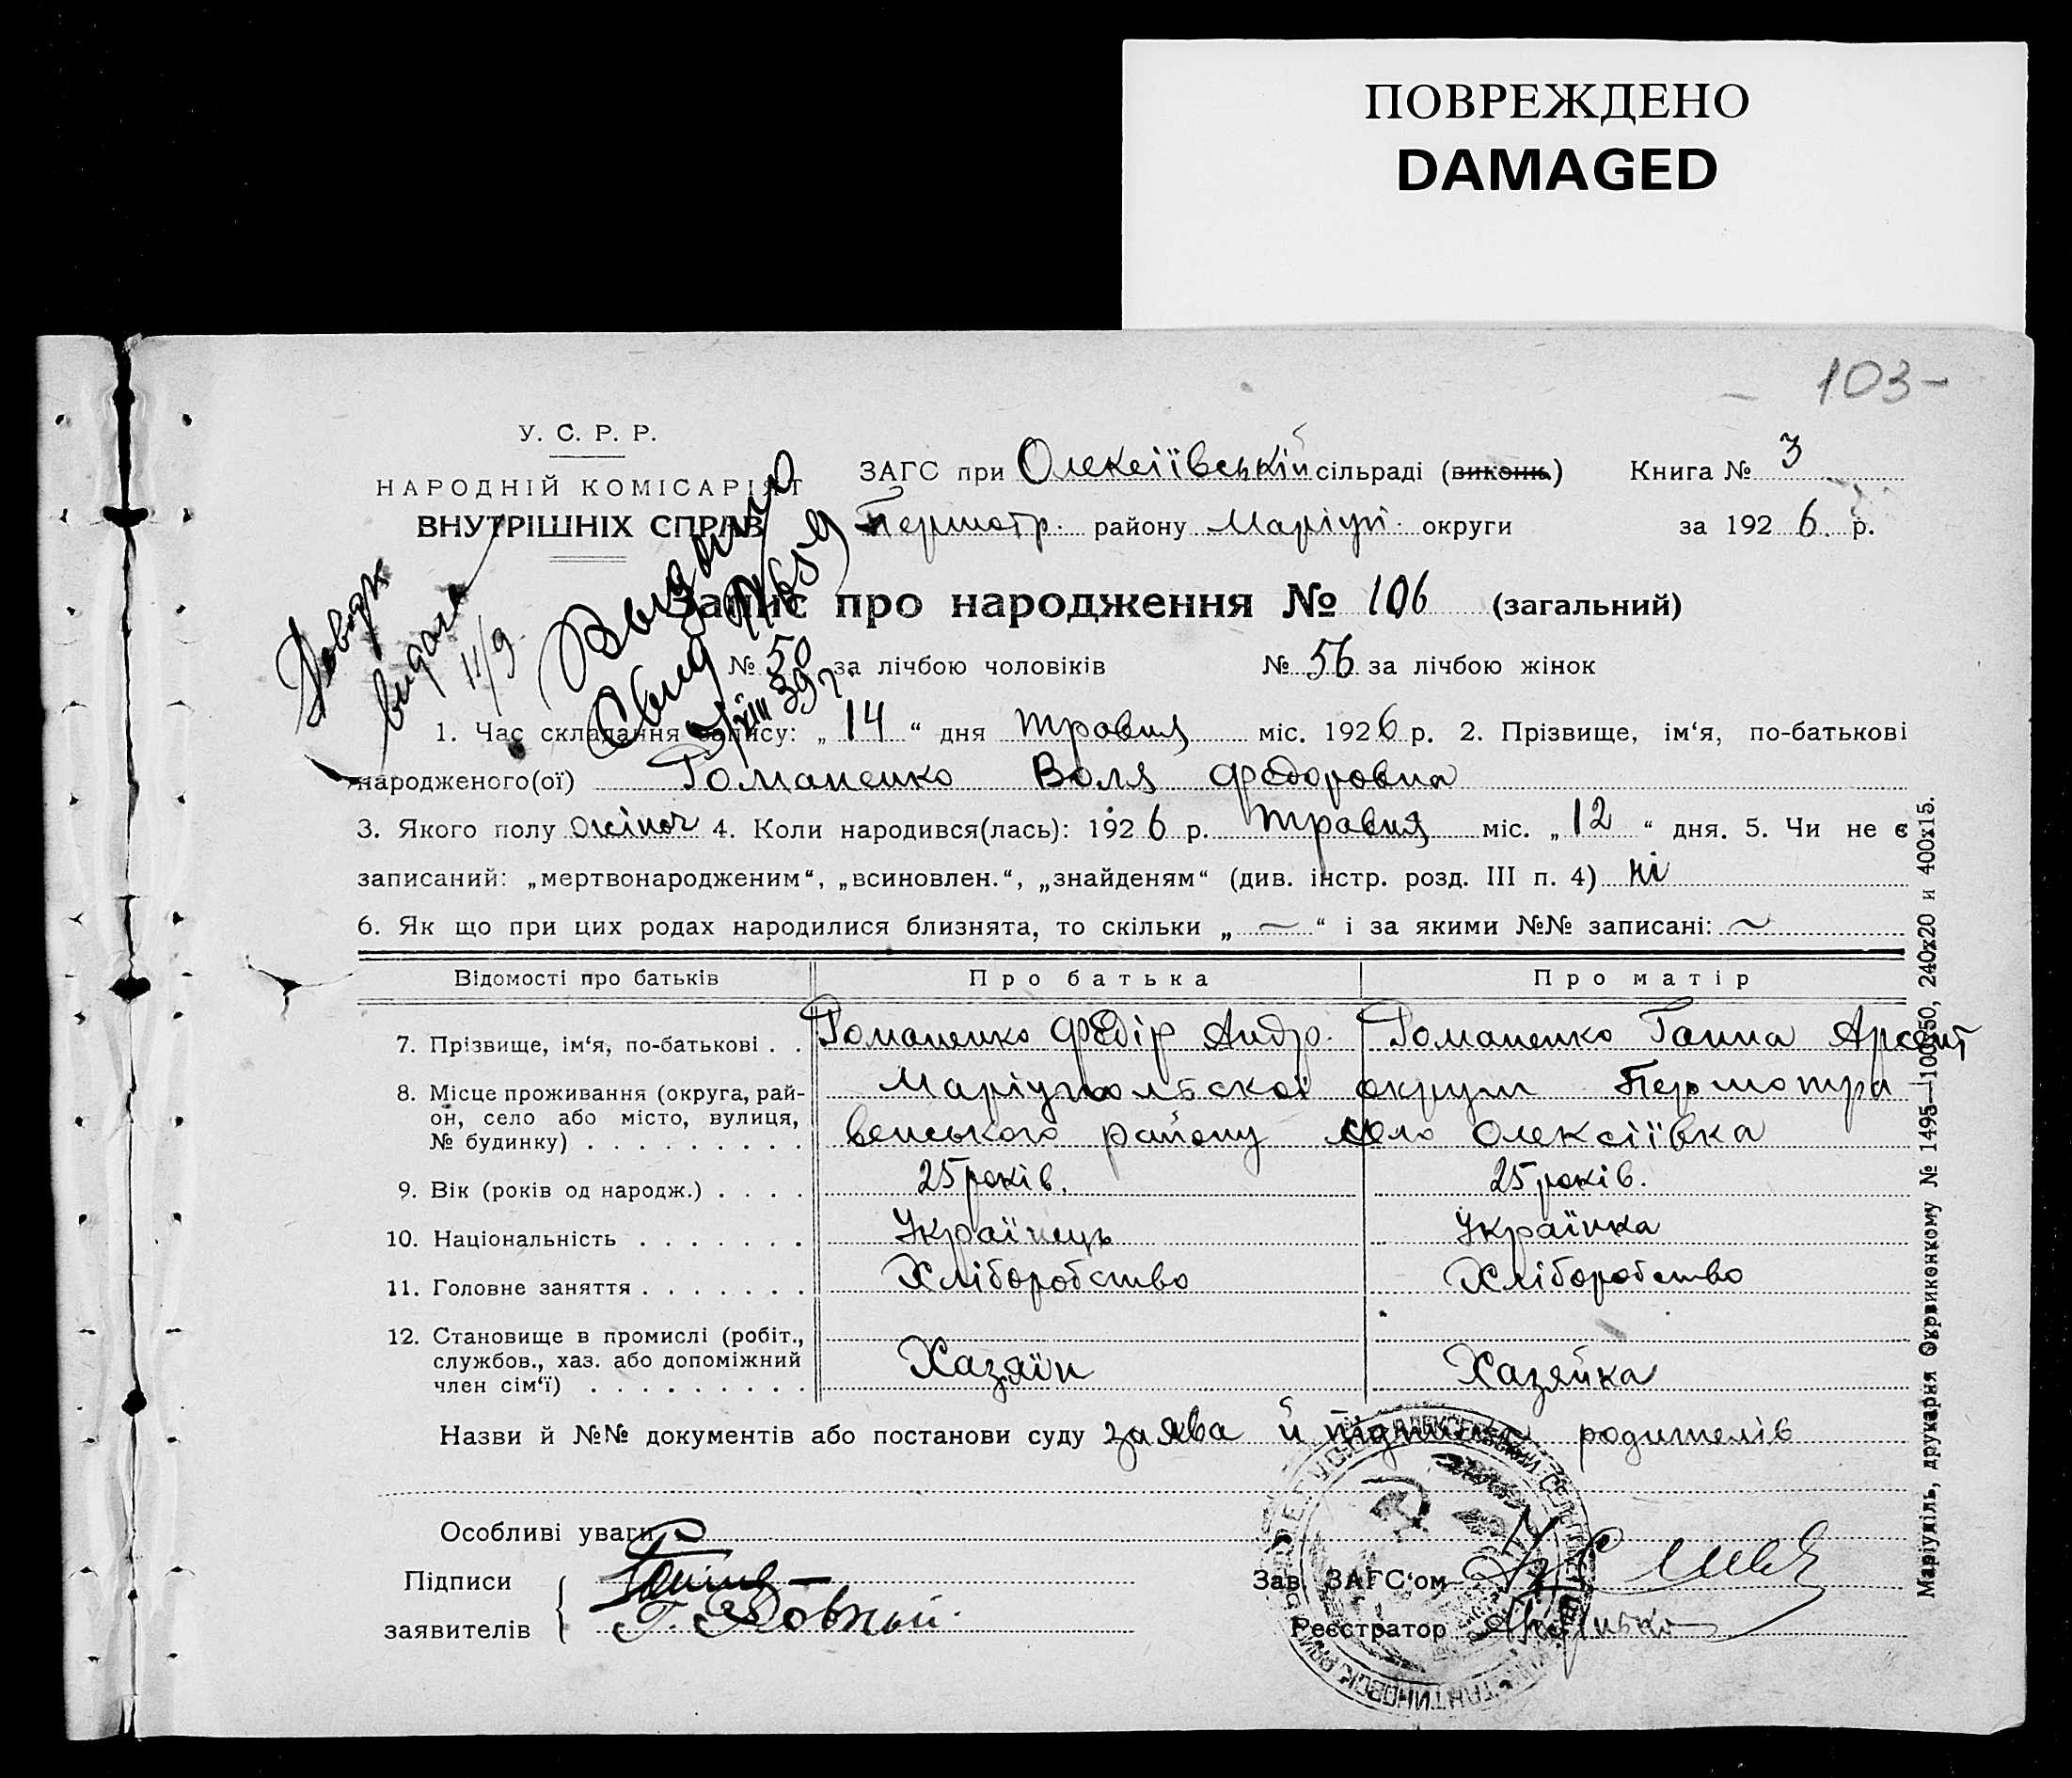 ПОВРЕЖДЕНО
DAMAGED
103-
У. С. Р. Р.
НАРОДНІЙ КОМІСАРІЯТ
ВНУТРІШНІХ СПРАВ
ЗАГС при Олексіївській сільраді (виконк) Книга № 3
Першотр. району Маріуп. округи за 1926 р.
Довідк видана 11/9
Выдано Свид
XII 39 г.
Запис про народження № 106 (загальний)
№ 50 за лічбою чоловіків № 56 за лічбою жінок
1. Час складання запису: „ 14 “ дня травня міс. 1926 р. 2. Прізвище, ім‘я, по-батькові
народженого(ої) Романенко Воля Федоровна
3. Якого полу жіноч 4. Коли народився(лась): 1926 р. травня міс. „ 12 “ дня. 5. Чи не є
записаний: „мертвонародженим“, „всиновлен.“, „знайденям“ (див. інстр. розд. III п. 4) ні
6. Як що при цих родах народилися близнята, то скільки „ — “ і за якими №№ записані: ~
Відомості про батьків Про батька Про матір
7. Прізвище, ім‘я, по-батькові . . Романенко Федір Андр. Романенко Ганна Арсент
8. Місце проживання (округа, рай- Маріупольскої округи Першотра
он, село або місто, вулиця,
№ будинку) . . . . . . . . . венського району село Олексіївка
9. Вік (років од народж.) . . . . 25 років. 25 років.
10. Національність . . . . . . . Українець Українка
11. Головне заняття . . . . . . . Хліборобство Хліборобство
12. Становище в промислі (робіт.,
службов., хаз. або допоміжний Хазяїн Хазяйка
член сім‘ї) . . . . . . . . .
Назви й №№ документів або постанови суду заява й підписи родителів
Особливі уваги
Підписи Зав. ЗАГС‘ом
заявителів Реєстратор
Маріупіль, друкарня Окрвиконкому № 1495—100х50, 240х20 и 400х15.